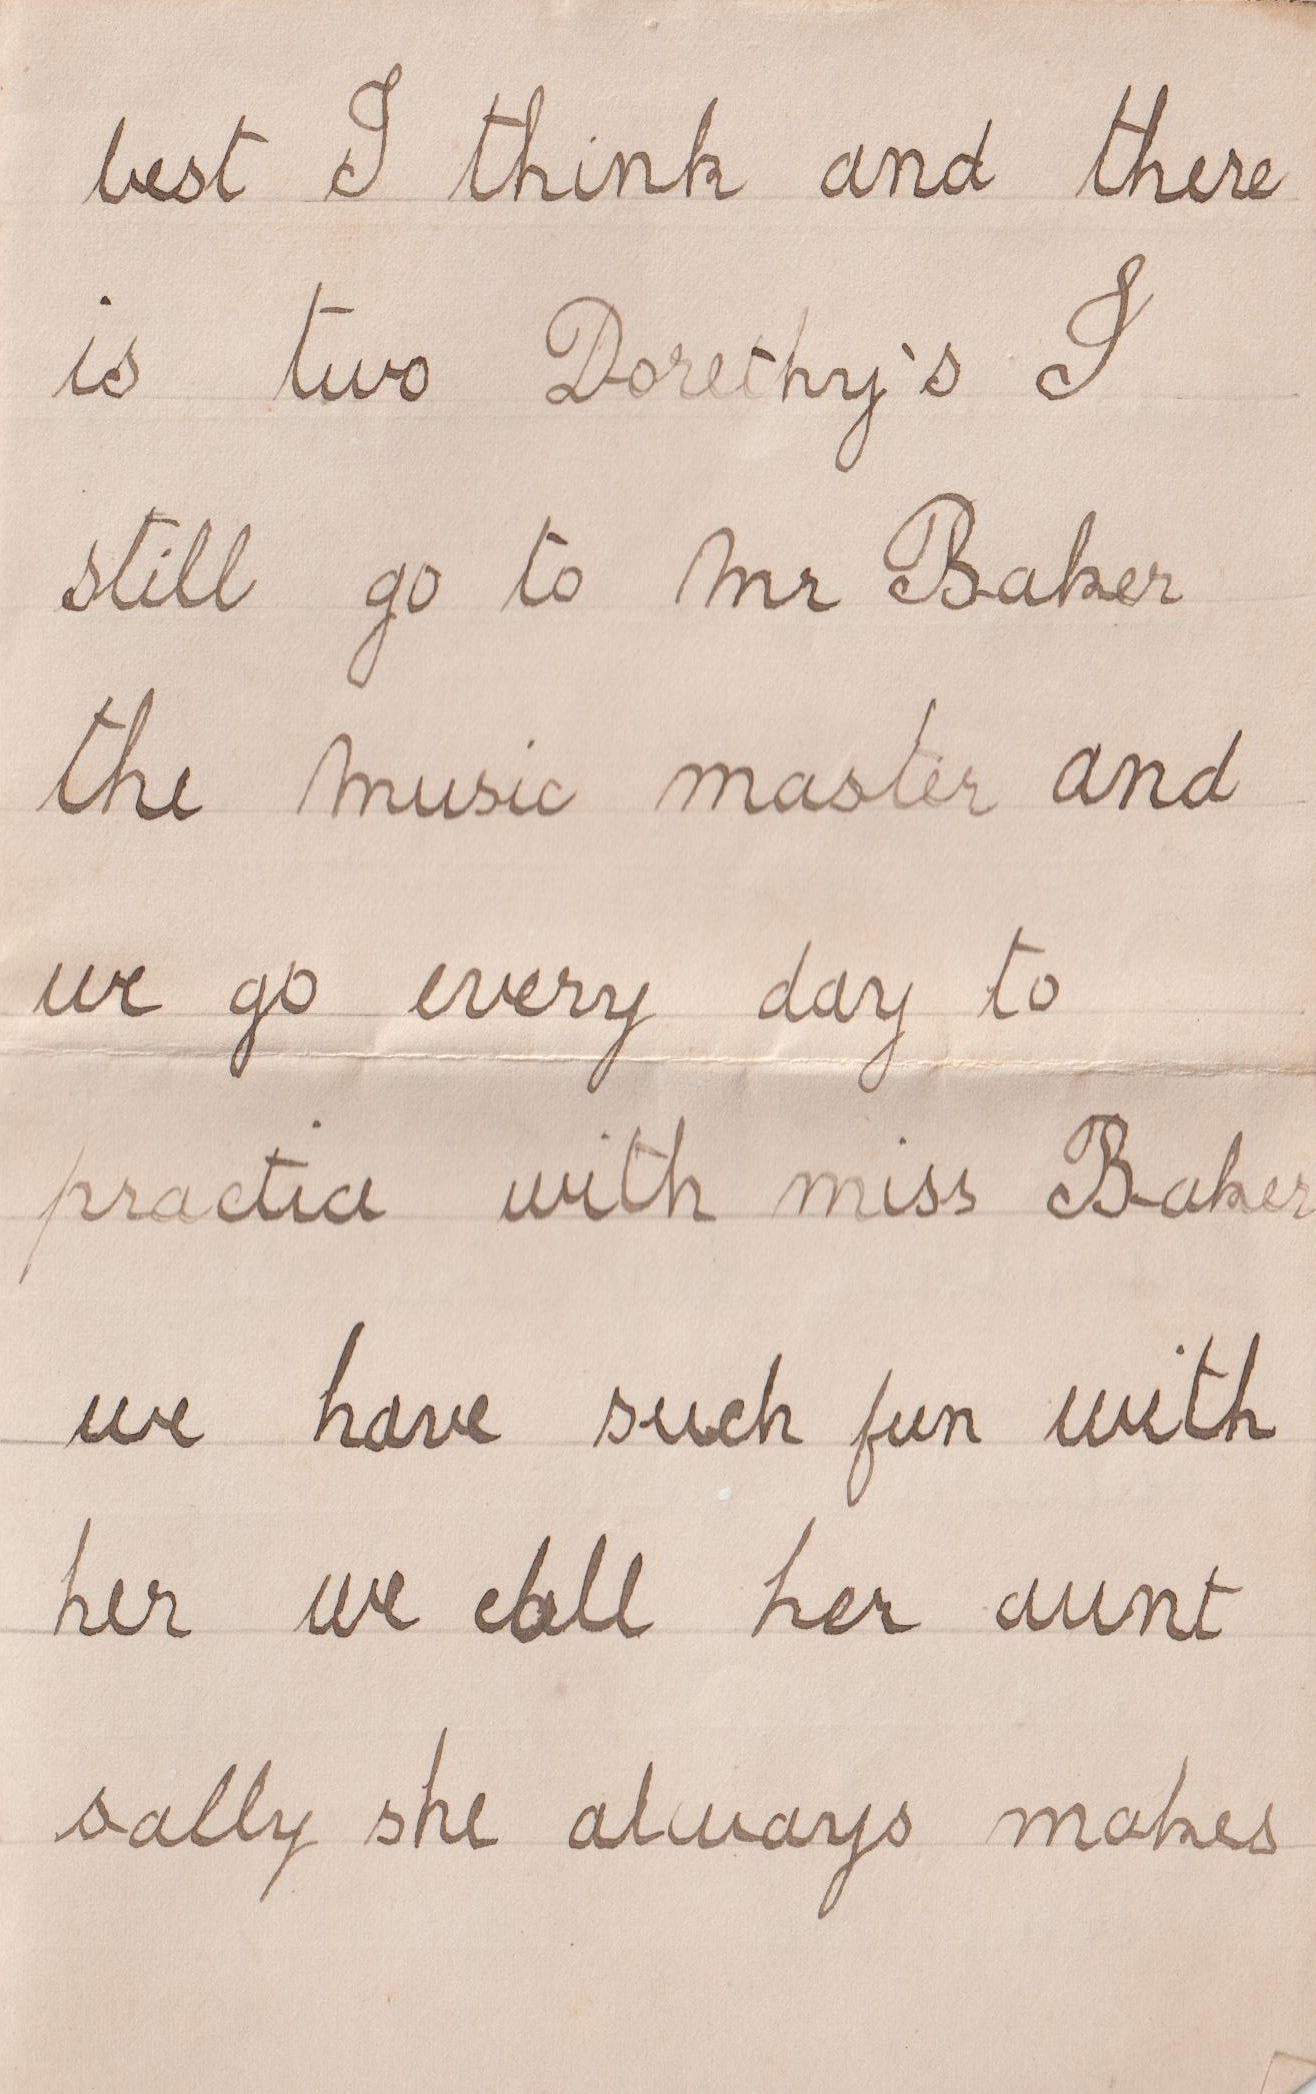 best I think and there
is two Dorethy's I
still go to Mr Baker
the music master and
we go every day to
practice with miss Baker
we have such fun with
her we call her aunt
sally she always makes